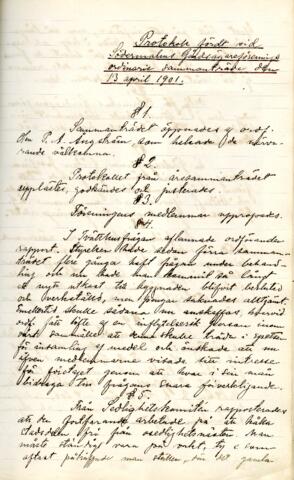 Protokoll fördt vid
Södermalms Gårdsägareförenings
ordinarie sammanträde den
13 april 1901.
§ 1.
Sammanträdet öppnades af ordf.
Hrn P. A. Ångström som helsade de närva-
rande välkomna.
§ 2.
Protokollet från årssammanträdet
upplästes, godkändes och justerades.
§ 3.
Föreningens medlemmar upproppades.
§ 4.
I Tvätthusfrågan aflemnade ordföranden
rapport. Styrelsen hade sedan förra samman-
trädet flere gånger haft frågan under behand-
ling och nu hade man kommit så långt
at nytt utkast till byggnaden blifvit
och men pengar saknades alltjämt.
Emellertid skulle sådana nu anskaffas, hvarvid
ord. fått löfte af en inflytelserik person inom
vårt samhälle att denne skulle träda i spetsen
för insamling af medel och önskade att
äfven medlemmarne visade sitt intresse
för företaget genom att hvar i sin mån
bidraga till frågans snara förverkligande.
§ 5.
Från Sedlighetskomitén rapporterades
att den fortfarande arbetade på att hålla
stadsdelen fri från osedlighetsnästen. Man
måste ständigt vara på vakt, ty
oftast påträffade man ställen, där det gamla